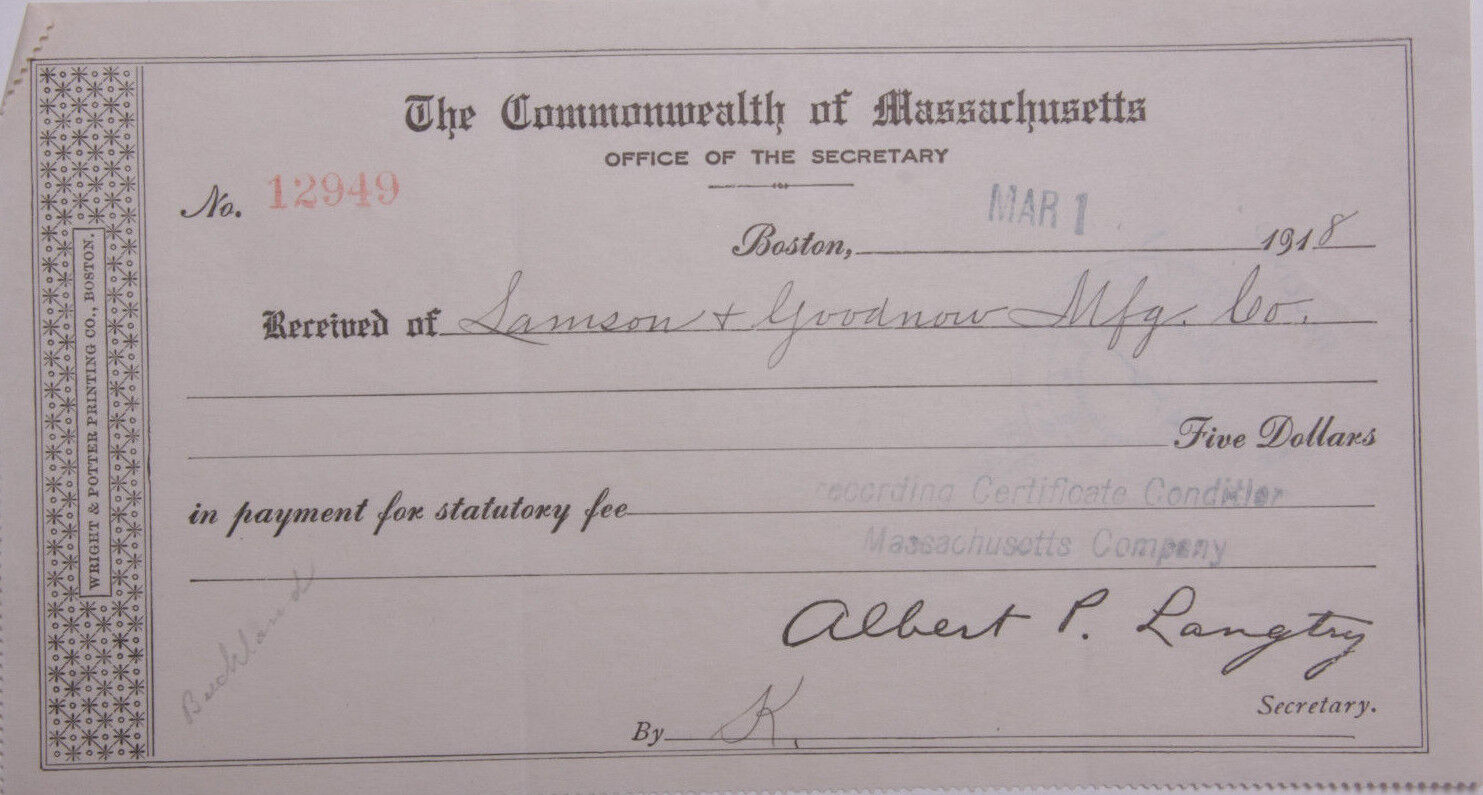 The Commonwealth of Massachusetts
OFFICE OF THE SECRETARY
No. 12949
MAR 1
Boston, 1918
Received of Lamson & Goodnow Mfg. Co.
Five Dollars
in payment for statutory fee recording Certificate Condition
Massachusetts Company
Albert P. Langtry
Secretary.
By K.
Buckland
WRIGHT & POTTER PRINTING CO., BOSTON.